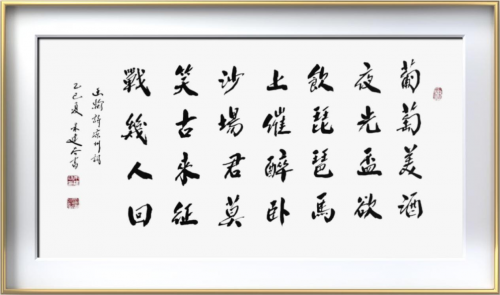 葡萄美酒
夜光盃欲
飲琵琶馬
上催醉卧
沙場君莫
笑古来征
戰幾人回
王翰詩涼州詞
乙巳夏